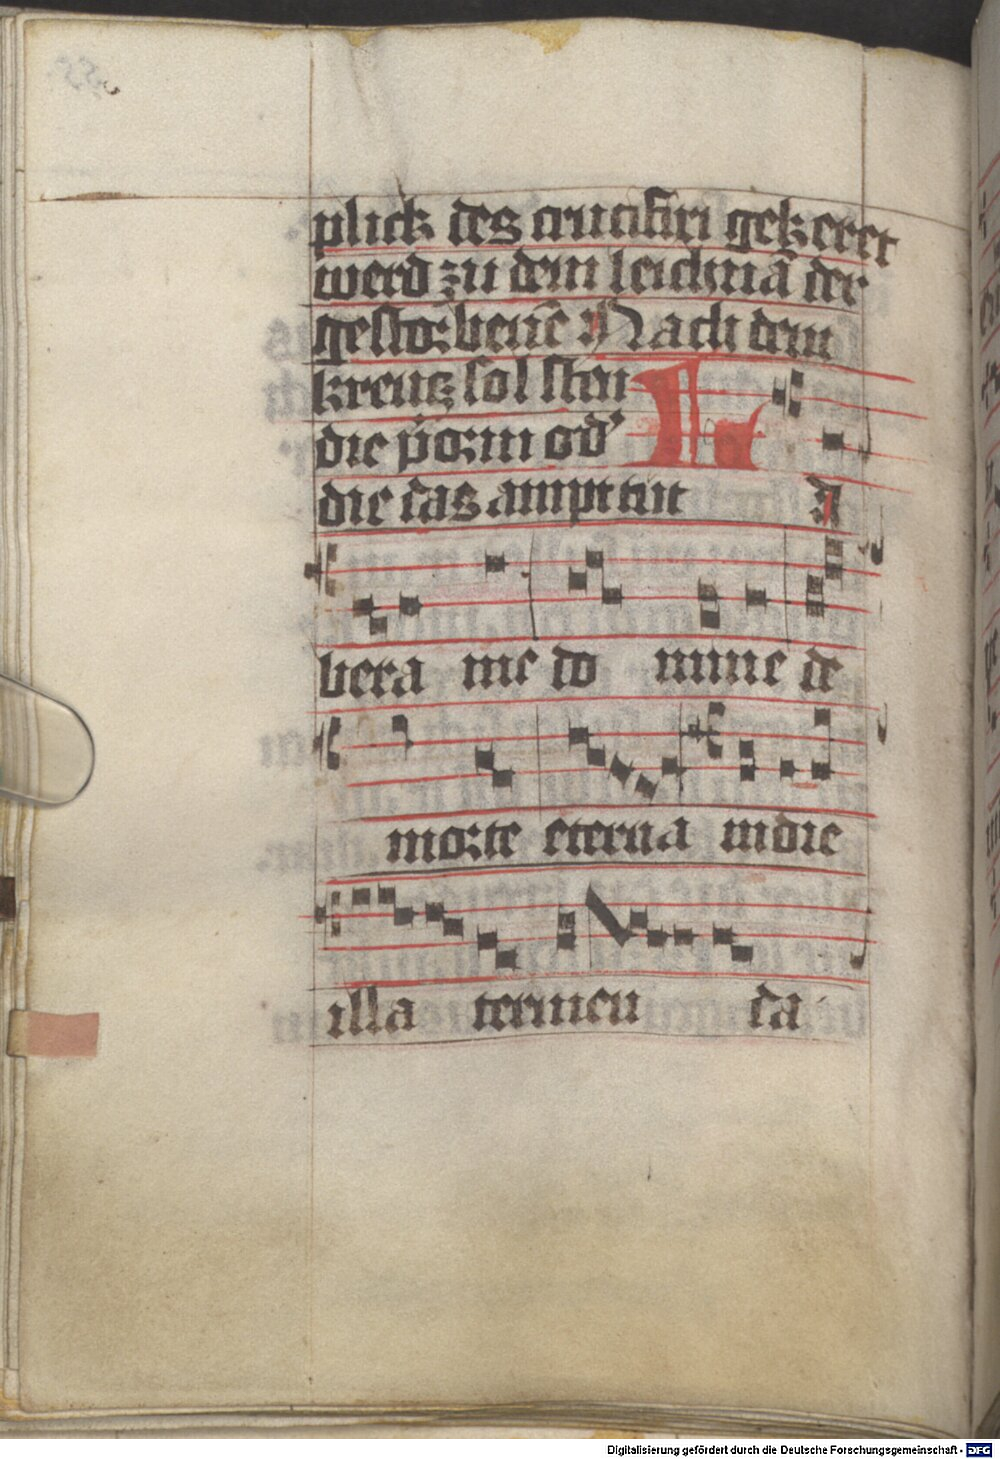 plick des crucifixi gekeret
werd zu dem leichnā der
gestorbenē Nach dem
kreutz sol sten
die p̄orin od'
die das ampt tut L I
bera me do mine de
morte eterna in die
illa tremen da
Digitalisierung gefördert durch die Deutsche Forschungsgemeinschaft - DFG